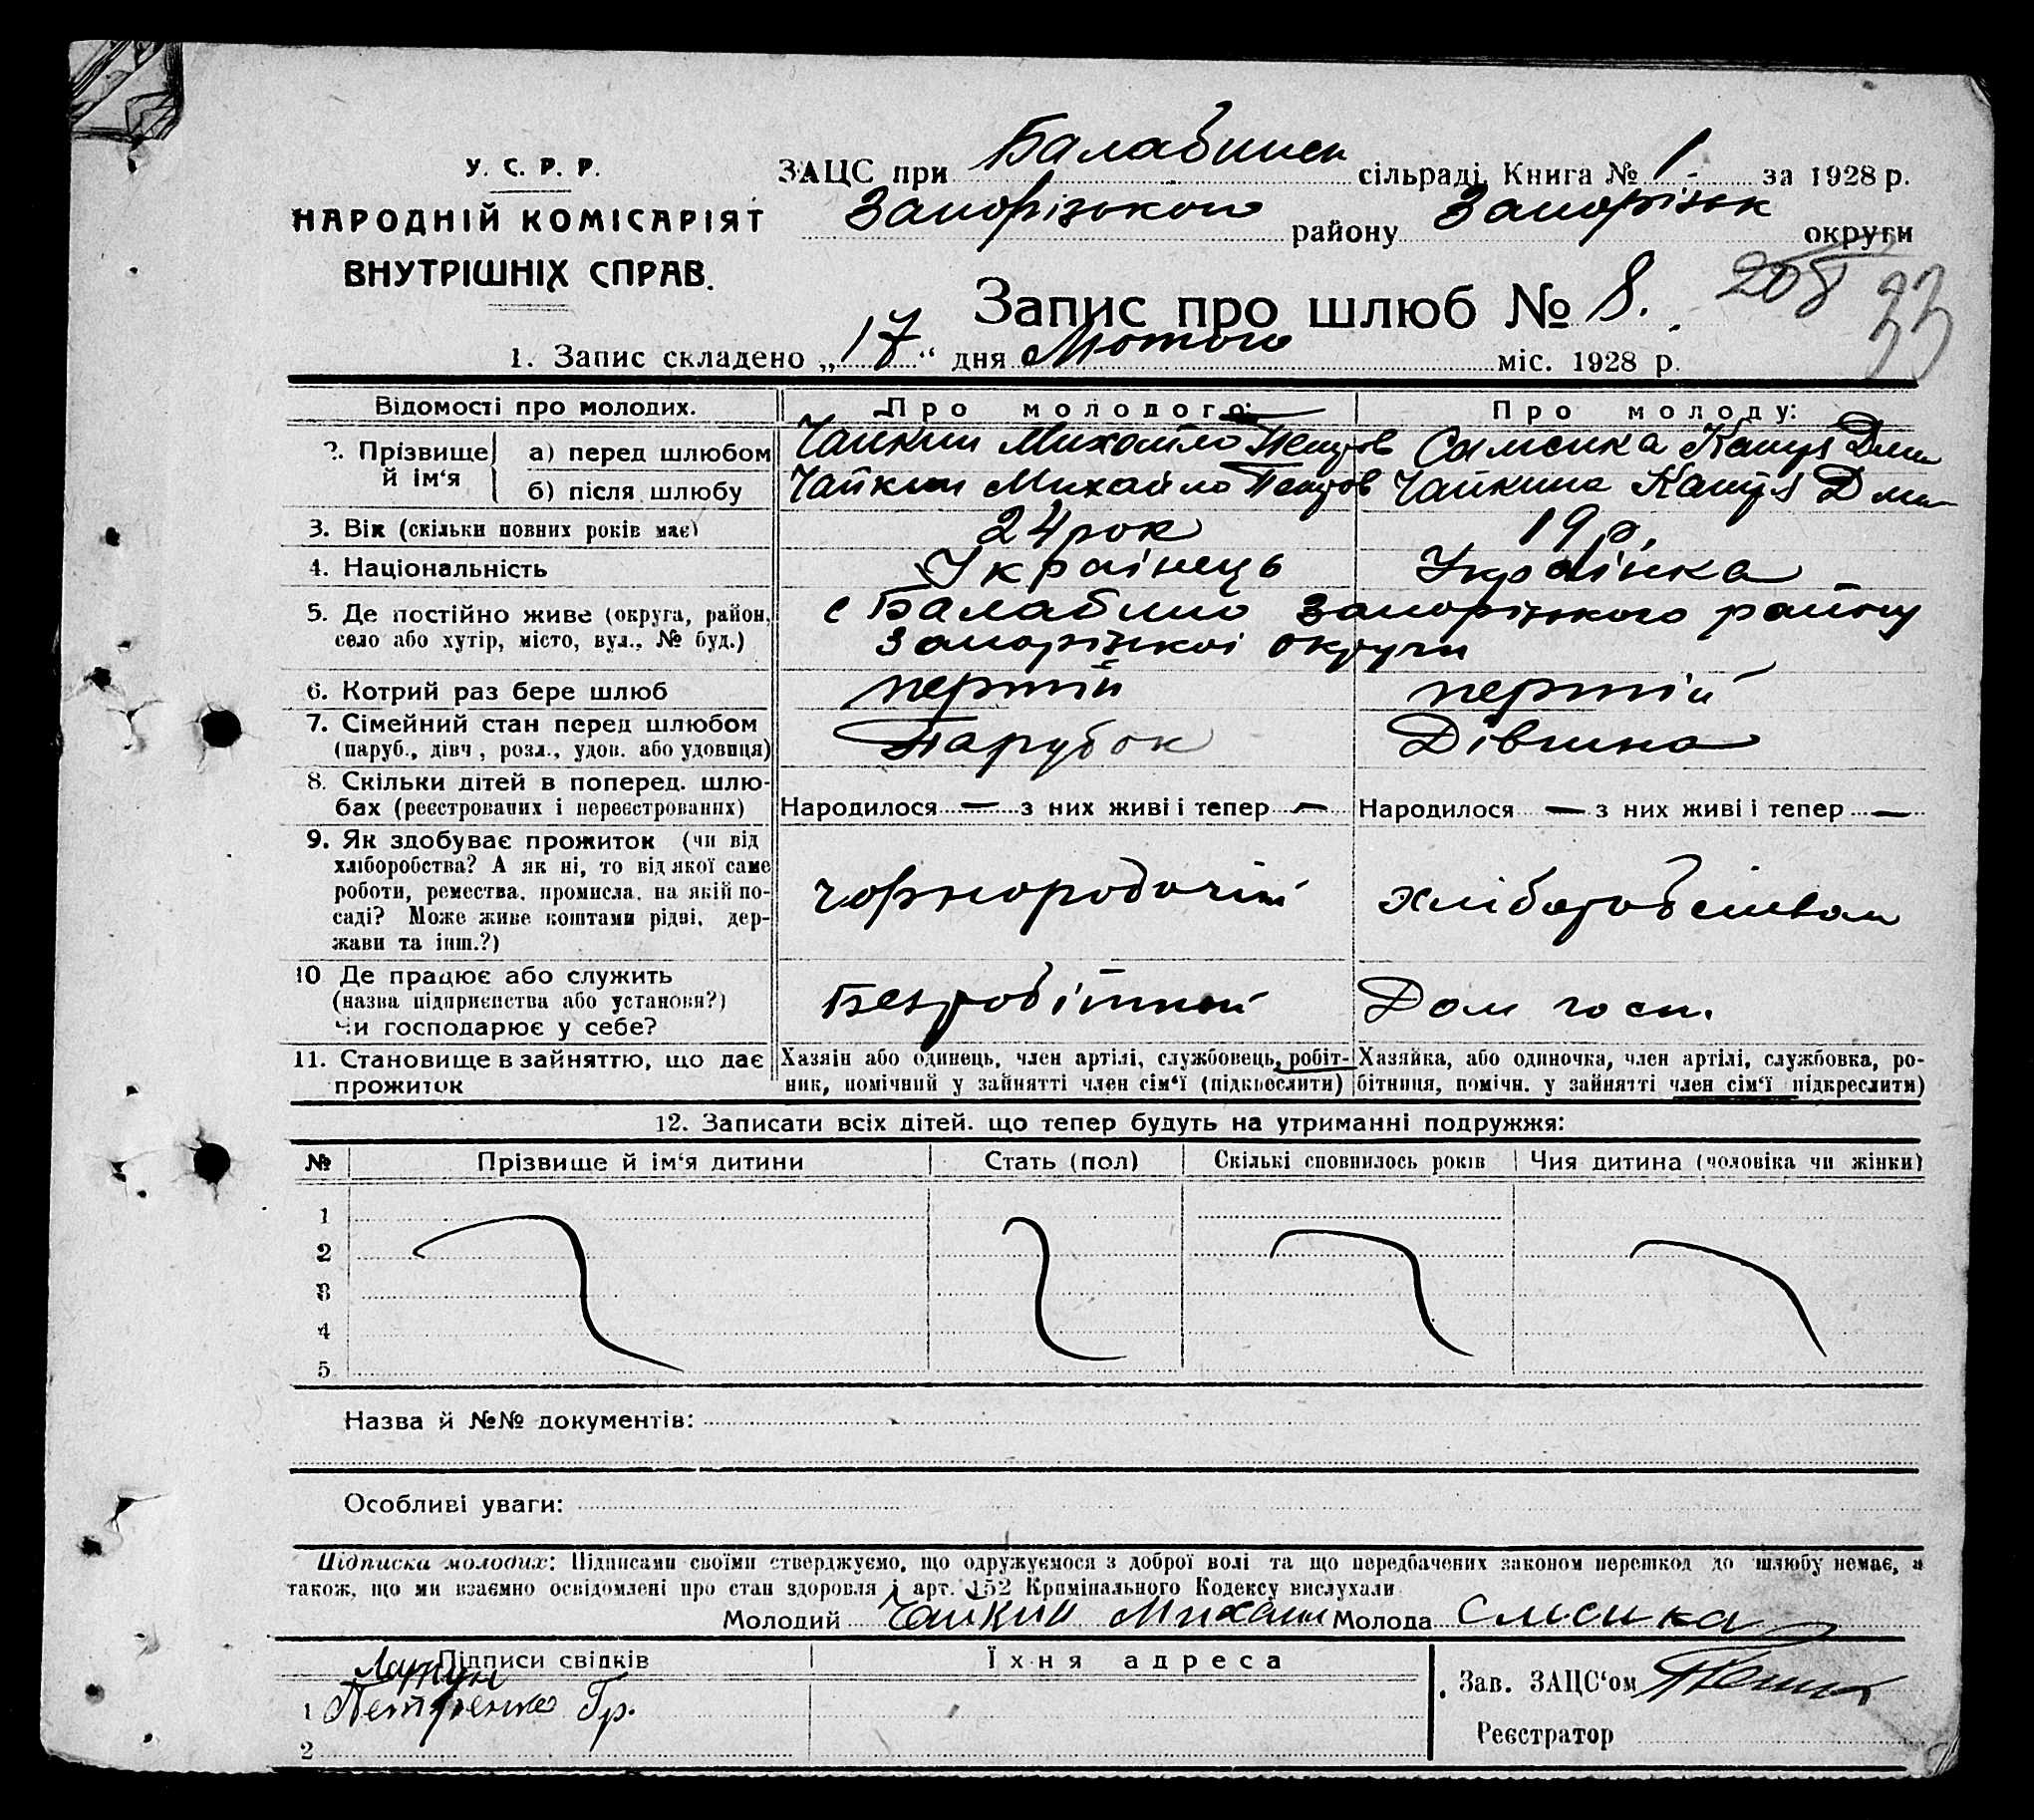 У. С. Р. Р.
НАРОДНІЙ КОМІСАРІЯТ
ВНУТРІШНІХ СПРАВ.
ЗАЦС при Балабинск сільраді. Книга № 1 за 1928 р.
Запорізького району Запорізьк округи
Запис про шлюб № 8.
208 33
1. Запис складено „17“ дня Лютого міс. 1928 р.
Відомості про молодих. Про молодого: Про молоду:
2. Прізвище й ім‘я а) перед шлюбом Чайкин Михайло Петров Самсика Катря Дми
б) після шлюбу Чайкин Михайло Петров Чайкина Катря Дми
3. Вік (скільки повних років має) 24 рок 19 р.
4. Національність Українець Українка
5. Де постійно живе (округа, район, село або хутір, місто, вул., № буд.) с Балабино Запорізького району
Запорізкоі округи
6. Котрий раз бере шлюб першій першій
7. Сімейний стан перед шлюбом (паруб., дівч., розл., удов. або удовиця) Парубок Дівчина
8. Скільки дітей в поперед. шлюбах (реєстрованих і нереєстрованих) Народилося — з них живі і тепер — Народилося — з них живі і тепер —
9. Як здобуває прожиток (чи від
хліборобства? А як ні, то від якої саме
роботи, ремества, промисла, на якій по-
саді? Може живе коштами рідні, дер-
жави та інш.?)
чорнородочій
10 Де працює або служить
(назва підприєнства або установи?)
Чи господарює у себе?
Безробітний Дом госп.
11. Становище в зайняттю, що дає прожиток
Хазяін або одинець, член артілі, службовець, робіт-
ник, помічний у зайнятті член сім‘ї (підкреслити)
Хазяйка, або одиночка, член артілі, службовка, ро-
бітниця, помічн. у зайнятті член сім‘ї підкреслити)
12. Записати всіх дітей. що тепер будуть на утриманні подружжя:
№ Прізвище й ім‘я дитини Стать (пол) Скількі сповнилось років Чия дитина (чоловіка чи жінки)
1
2
3
4
5
Назва й №№ документів:
Особливі уваги:
Підписка молодих: Підписами своїми стверджуємо, що одружуємося з доброї волі та що передбачених законом перешкод до шлюбу немає, а
також, що ми взаємно освідомлені про стан здоровля і арт. 152 Кримінального Кодексу вислухали
Молодий Чайкин Михаил Молода Смсика
Підписи свідків Їхня адреса
1 Петренко Гр.
2
Зав. ЗАЦС‘ом
Реєстратор